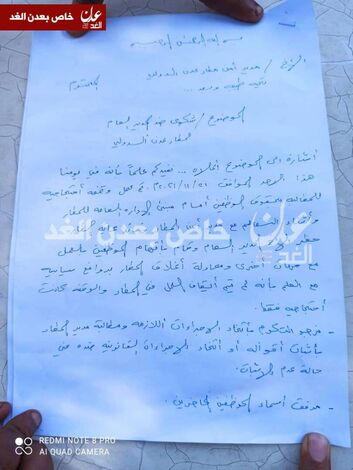 عدن الغد
خاص بعدن الغد
بسم الله الرحمن الرحيم
الأخ / مدير أمن مطار عدن الدولي
المحترم
تحية طيبة وبعد ...
الموضوع / شكوى ضد المدير العام
لمطار عدن الدولي
إشارة الى الموضوع أعلاه ... نفيدكم علماً بأنه في يومنا
هذا الأحد الموافق ٢٠٢١/١١/٢١م تم عمل وقفة احتجاجية
للمطالبة بحقوق الموظفين أمام مبنى الإدارة العامة للمطار
حضر المدير العام وقام باتهام الموظفين بالعمل
مع جهات أخرى ومحاولة أغلاق المطار بدوافع سياسية
مع العلم بأنه لم يتم أيقاف العمل في المطار والوقفة كانت
احتجاجية فقط.
- نرجو التكرم باتخاذ الإجراءات اللازمة ومطالبة مدير المطار
بأثبات أقواله أو اتخاذ الإجراءات القانونية ضده في
حالة عدم الإثبات.
- مرفق أسماء الموظفين الحاضرين.
عدن الغد خاص بعدن الغد
REDMI NOTE 8 PRO
AI QUAD CAMERA